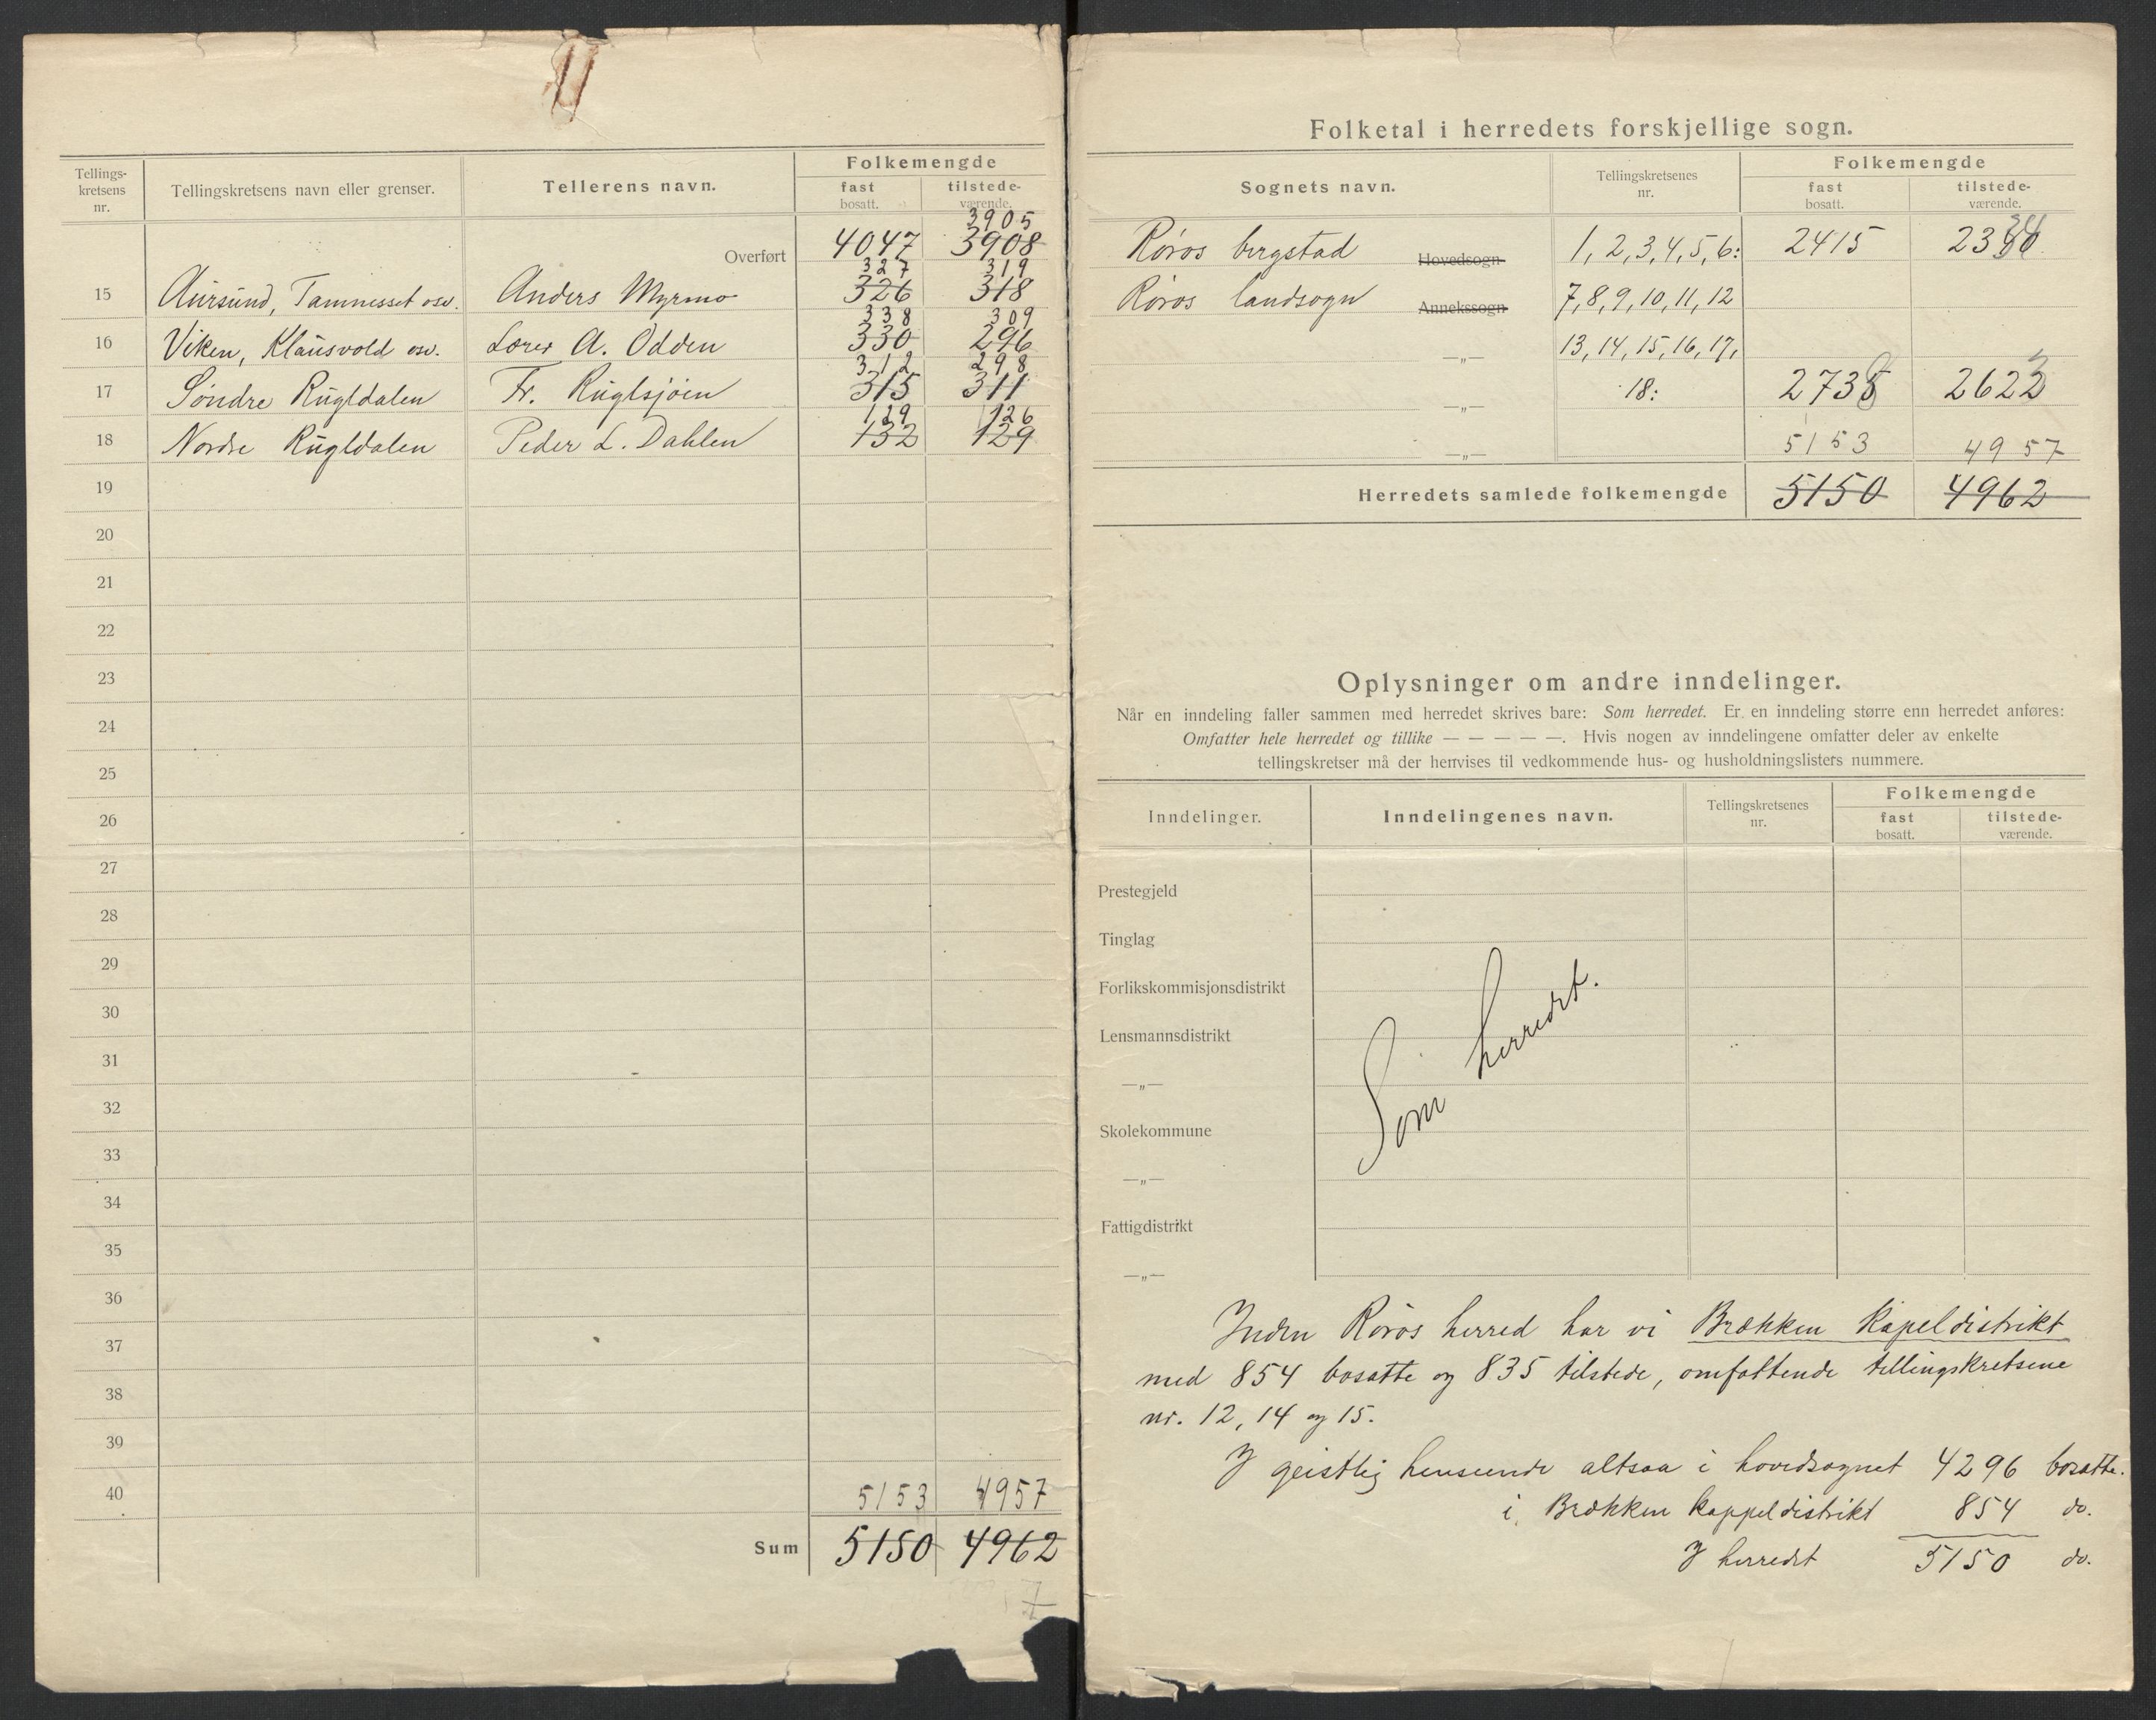 Tellings-
kretsens
nr.
Tellingskretsens navn eller grenser.
Tellerens navn.
Folkemengde
fast
bosatt.
tilstede-
værende.
3905
Overført 4047 3908
327 319
15 Aursund, Tamnesset osv. Anders Myrmo 326 318
338 309
16 Viken, Klausvold osv. Lærer A. Odden 330 296
312 298
17 Søndre Rugldalen Fr. Ruglsjøen 315 311
129 126
18 Nordre Rugldalen Peder L. Dahlen 132 129
19
20
21
22
23
24
25
26
27
28
29
30
31
32
33
34
35
36
37
38
39
40 5153 4957
Sum 5150 4962
Folketal i herredets forskjellige sogn.
Sognets navn.
Tellingskretsenes
nr.
Folkemengde
fast
bosatt.
tilstede-
værende.
Røros bergstad Hovedsogn 1, 2, 3, 4, 5, 6: 2415
Røros landsogn Annekssogn 7, 8, 9, 10, 11, 12
—„— 13, 14, 15, 16, 17,
—„— 18: 2738 2623
—„— 5153 4957
Herredets samlede folkemengde 5150 4962
Oplysninger om andre inndelinger.
Når en inndeling faller sammen med herredet skrives bare: Som herredet. Er en inndeling større enn herredet anføres:
Omfatter hele herredet og tillike — — — — —. Hvis nogen av inndelingene omfatter deler av enkelte
tellingskretser må der henvises til vedkommende hus- og husholdningslisters nummere.
Inndelinger.
Inndelingenes navn.
Tellingskretsenes
nr.
Folkemengde
fast
bosatt.
tilstede-
værende.
Prestegjeld
Tinglag
Forlikskommisjonsdistrikt
Lensmannsdistrikt
—„—
Skolekommune
—„—
Fattigdistrikt
—„—
Som herredet.
Inden Røros herred har vi Brækken Kapeldistrikt
med 854 bosatte og 835 tilstede, omfattende tellingskretsene
nr. 12, 14 og 15.
I geistlig henseende altsaa i hovedsognet 4296 bosatte.
i Brækken kappeldistrikt 854 do.
I herredet 5150 do.